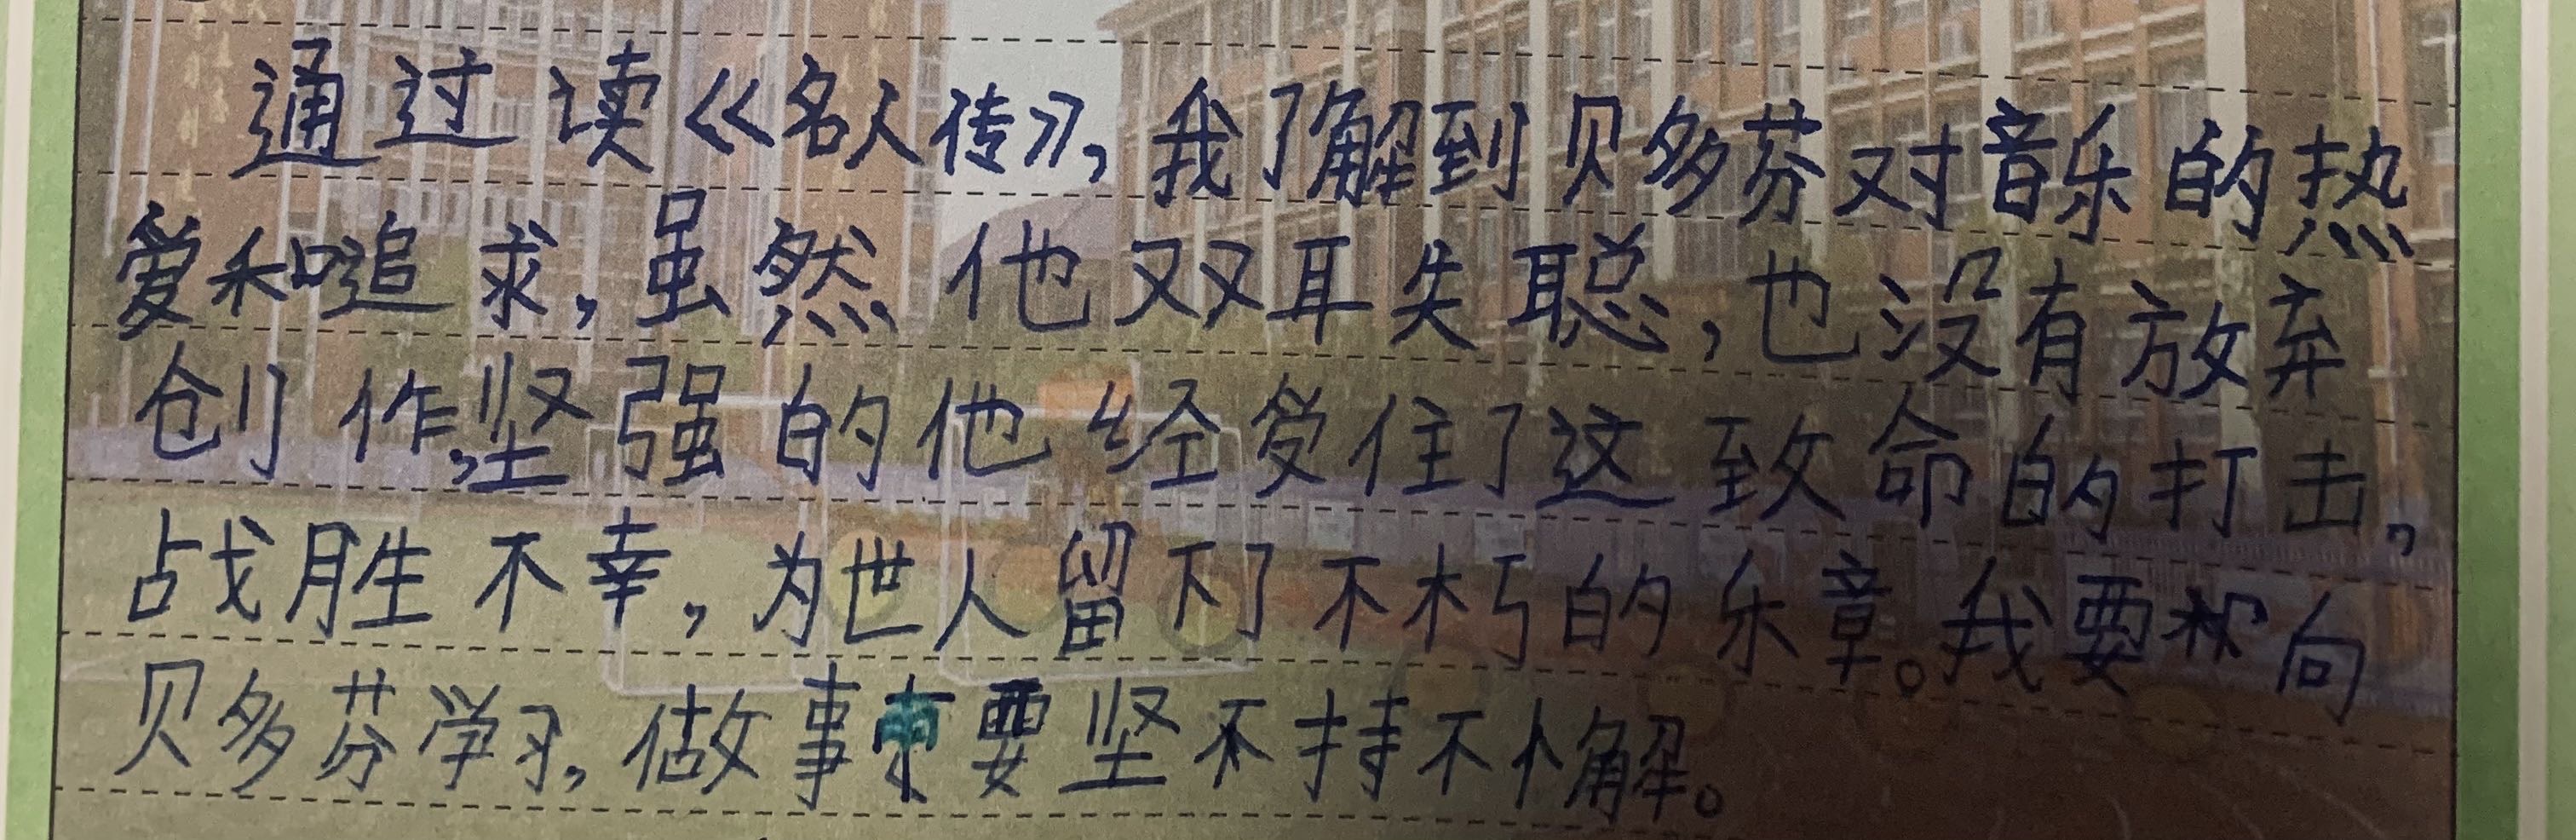 通过读《名人传》，我了解到贝多芬对音乐的热
爱和追求，虽然他双耳失聪，也没有放弃
创作，坚强的他经受住了这致命的打击，
战胜不幸，为世人留下了不朽的乐章。我要向
贝多芬学习，做事要坚不持不懈。